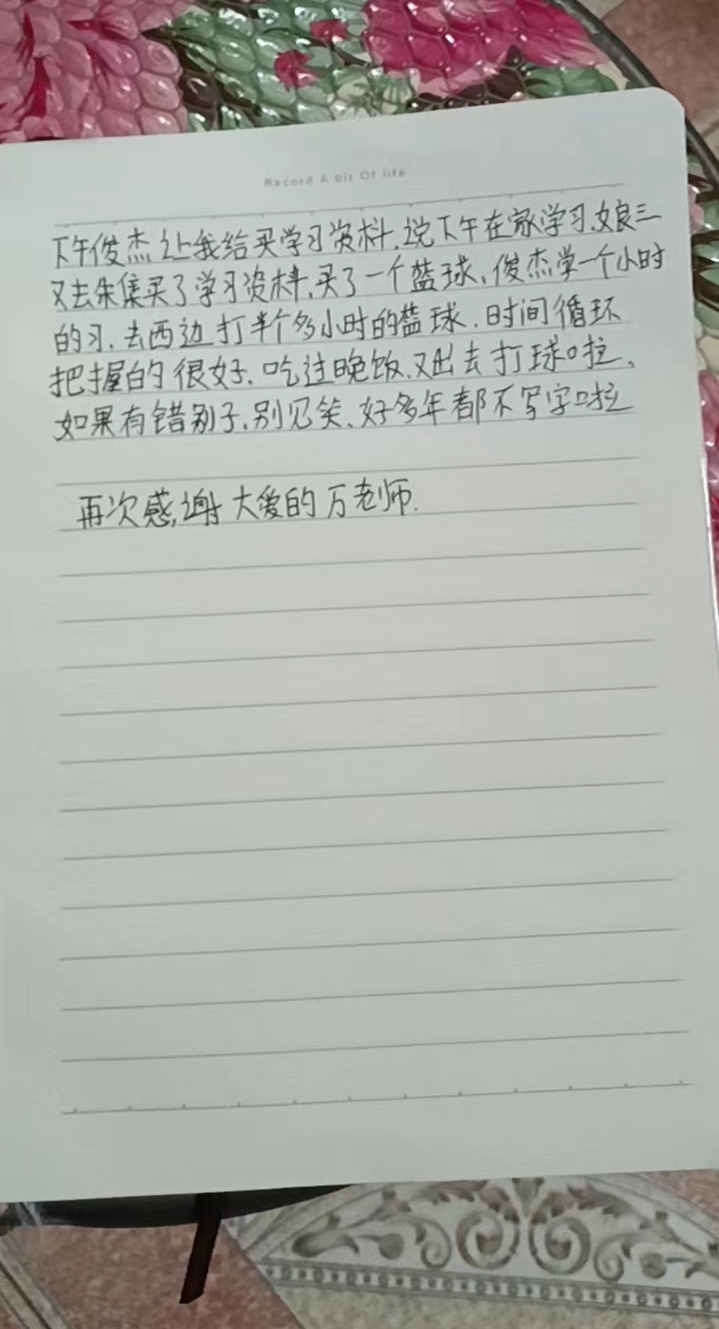 Record A bit Of life
下午俊杰让我给买学习资料.说下午在家学习.娘三
又去朱集买了学习资料.买了一个篮球、俊杰学一个小时
的习.去西边打半个多小时的篮球.时间循环
把握的很好.吃过晚饭.又出去打球啦、
如果有错别子.别见笑、好多年都不写字啦
再次感谢大爱的万老师.